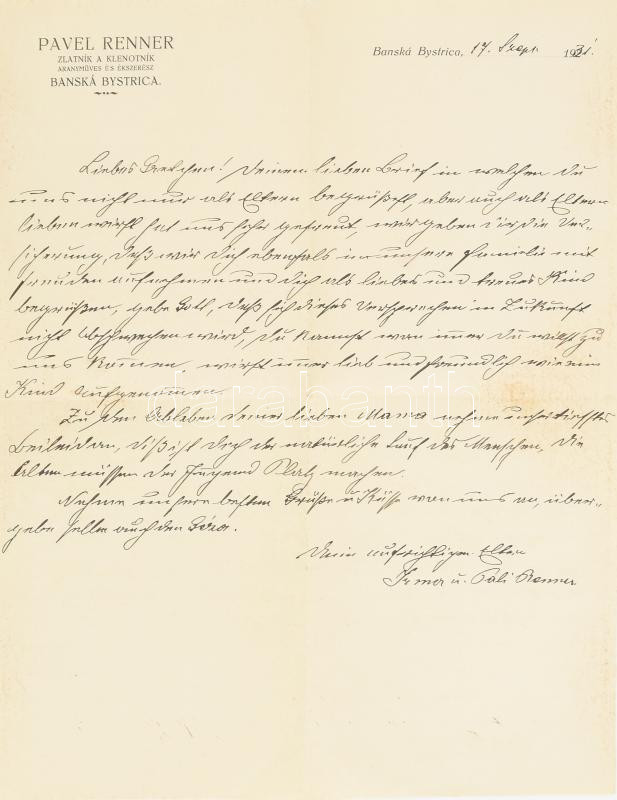 PAVEL RENNER
ZLATNÍK A KLENOTNÍK
ARANYMŰVES ÉS ÉKSZERÉSZ
BANSKÁ BYSTRICA.
Banská Bystrica, 17. Sept. 1931.
Liebes Gretchen! Deinen lieben Brief in welchen du
uns nicht nur als Eltern begrüßest, aber auch als Eltern
lieben wirst hat uns sehr gefreut, wir geben dir die Ver-
sicherung, daß wir dich ebenfalls in unsere Familie mit
Freuden aufnehmen und dich als liebes und treues Kind
begrüßen, gebe Gott, daß sich dieses Versprechen in Zukunft
nicht abschwechen wird, du kannst wan immer du willst zu
uns kommen, wirst immer lieb und freundlich wie ein
Kind aufgenommen.
Zu dem Ableben deiner lieben Mama nehme unser tiefstes
Beileid an, diß ist doch der natürliche Lauf des Menschen, die
Alten müssen der Jugend Platz machen.
Nehme unsere besten Grüße u Küsse von uns an, über-
gebe selbe auch den Géza.
Dein aufrichtigen Eltern
Irma u. Pali Renner
darabanth